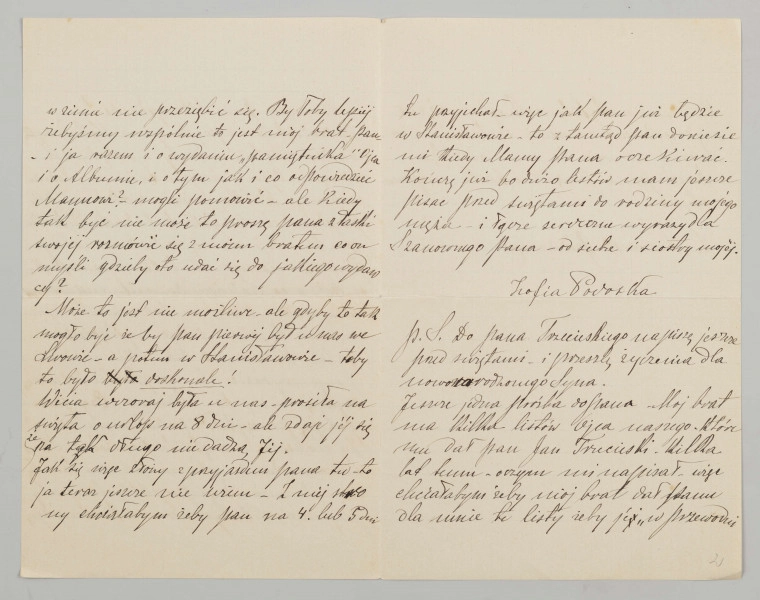 w zimie nie przeziębić się. By toby lepiéj
żebyśmy wspólnie to jest mój brat Pan
- i ja razem i o wydaniu „pamiętnika” Ojca
i o Albumie, i o tym jak i co odpowiedzieć
Mannowi? - mogli pomówić - ale kiedy
tak być nie może to proszę pana z łaski
swojéj rozmówić się z moim bratem co on
myśli gdzieby oto udać się do jakiego wydaw
cy?
Może to jest nie możliwe - ale gdyby to tak
mogło być żeby pan pierwéj był u nas we
Lwowie - a potem w Stanisławowie - toby
to było doskonale!
Wicia wczoraj była u nas - prosiła na
święta o urlop na 8 dni - ale zdaje jéj się
że na tak długo nie dadzą Jéj.
Jak się więc złoży z przyjazdem pana tu - to
ja teraz jeszcze nie wiem - Z méj stro
ny chciałabym żeby pan na 4. lub 5 dni
tu przyjechał - więc jak pan już będzie
w Stanisławowie - to z tamtąd pan doniesie
mi kiedy Mamy Pana oczekiwać.
Kończę już bo dużo listów mam jeszcze
pisać przed świętami do rodziny mojego
męża - i łączę serdeczne wyrazy dla
Szanownego Pana - od siebie i siostry mojéj.
Zofia Podoska
P. S. Do pana Trzecieskiego napiszę jeszcze
przed świętami - i prześlę życzenia dla
nowonarodzonego Syna.
Jeszcze jedna prośba do Pana - Mój brat
ma kilka listów Ojca naszego - które
mu dał pan Jan Trzecieski. Kilka
lat temu - o czym mi napisał - więc
chciałabym żeby mój brat dał Panu
dla mnie te listy żeby je „w przewodni